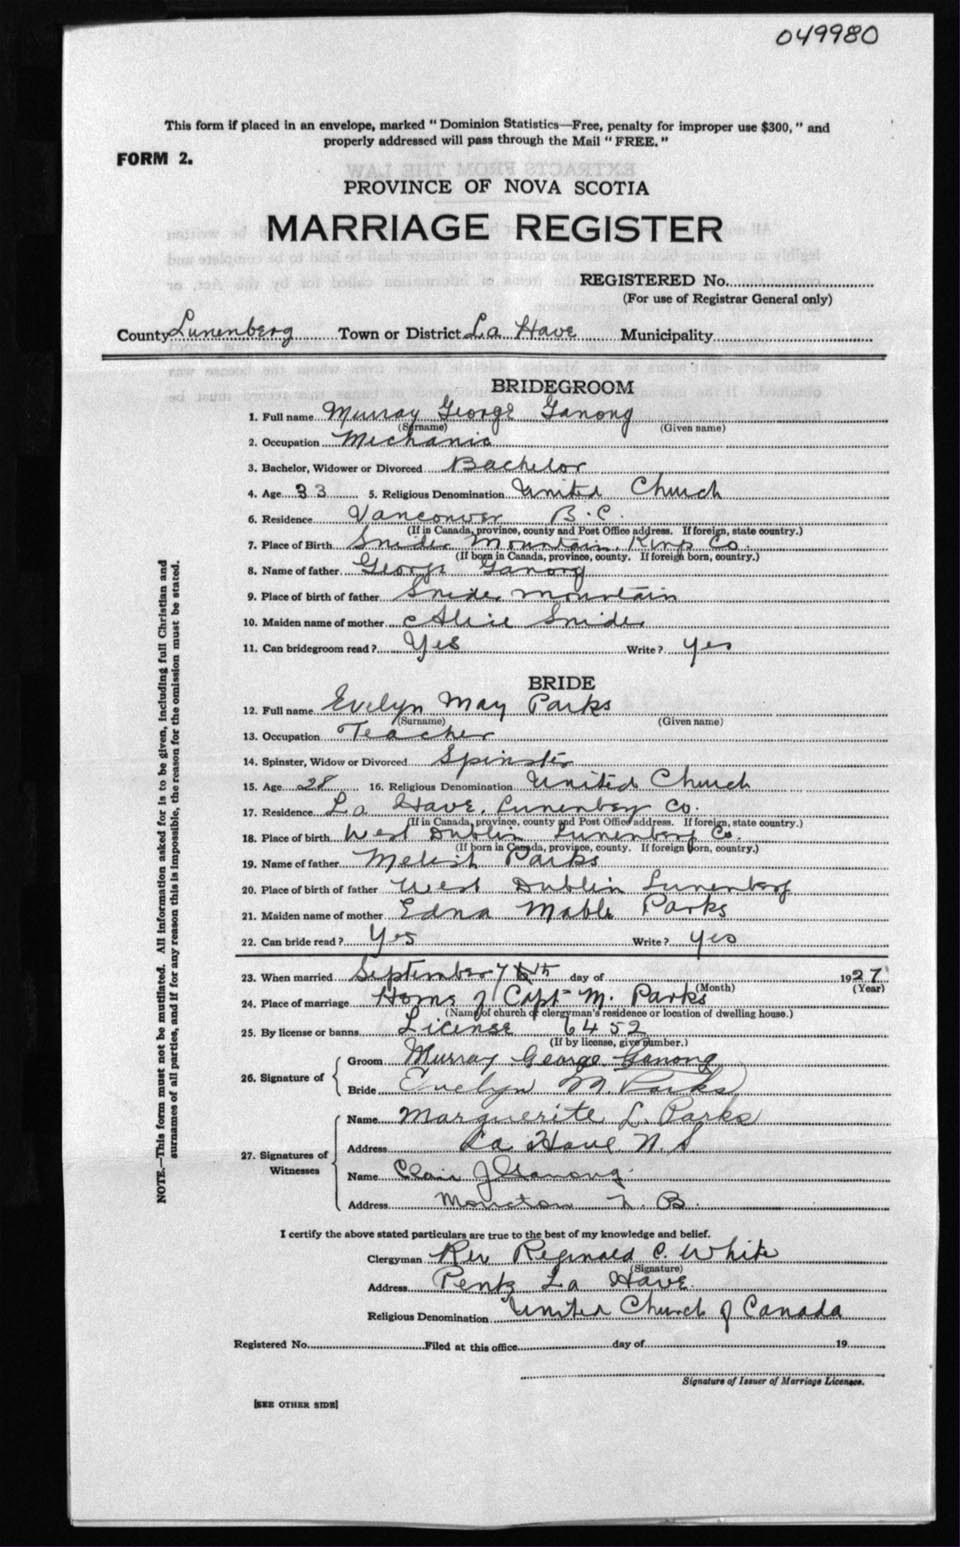 049980
This form if placed in an envelope, marked "Dominion Statistics—Free, penalty for improper use $300," and
properly addressed will pass through the Mail "FREE."
FORM 2.
PROVINCE OF NOVA SCOTIA
MARRIAGE REGISTER
REGISTERED No.
(For use of Registrar General only)
County Lunenberg Town or District La Have Municipality
BRIDEGROOM
1. Full name Murray George Ganong
(Surname) (Given name)
2. Occupation Mechanic
3. Bachelor, Widower or Divorced Bachelor
4. Age 33 5. Religious Denomination United Church
6. Residence Vancouver B.C.
(If in Canada, province, county and Post Office address. If foreign, state country.)
7. Place of Birth Snider Mountain Kings Co.
(If born in Canada, province, county. If foreign born, country.)
8. Name of father George Ganong
9. Place of birth of father Snider Mountain
10. Maiden name of mother Alice Snider
11. Can bridegroom read? Yes Write? yes
BRIDE
12. Full name Evelyn May Parks
(Surname) (Given name)
13. Occupation Teacher
14. Spinster, Widow or Divorced Spinster
15. Age 28 16. Religious Denomination United Church
17. Residence La Have, Lunenberg Co.
(If in Canada, province, county and Post Office address. If foreign, state country.)
18. Place of birth West Dublin Lunenberg Co.
(If born in Canada, province, county. If foreign born, country.)
19. Name of father Parks
20. Place of birth of father West Dublin Lunenberg
21. Maiden name of mother Edna Mable Parks
22. Can bride read? Yes Write? yes
23. When married September 7 day of 1927
(Month) (Year)
24. Place of marriage Home of Capt M. Parks
(Name of church of clergyman's residence or location of dwelling house.)
25. By license or banns License 6452
(If by license, give number.)
26. Signature of Groom Murray George Ganong
Bride Evelyn M. Parks
27. Signatures of Witnesses Name Marguerite L. Parks
Address La Have N.S.
Name Clair J Ganong
Address Moncton N.B.
I certify the above stated particulars are true to the best of my knowledge and belief.
Clergyman Rev Reginald C. White
(Signature)
Address Pentz La Have.
Religious Denomination United Church of Canada
Registered No. Filed at this office day of 19
Signature of Issuer of Marriage Licenses.
[SEE OTHER SIDE]
NOTE.—This form must not be mutilated. All information asked for is to be given, including full Christian and
surnames of all parties, and if for any reason this is impossible, the reason for the omission must be stated.